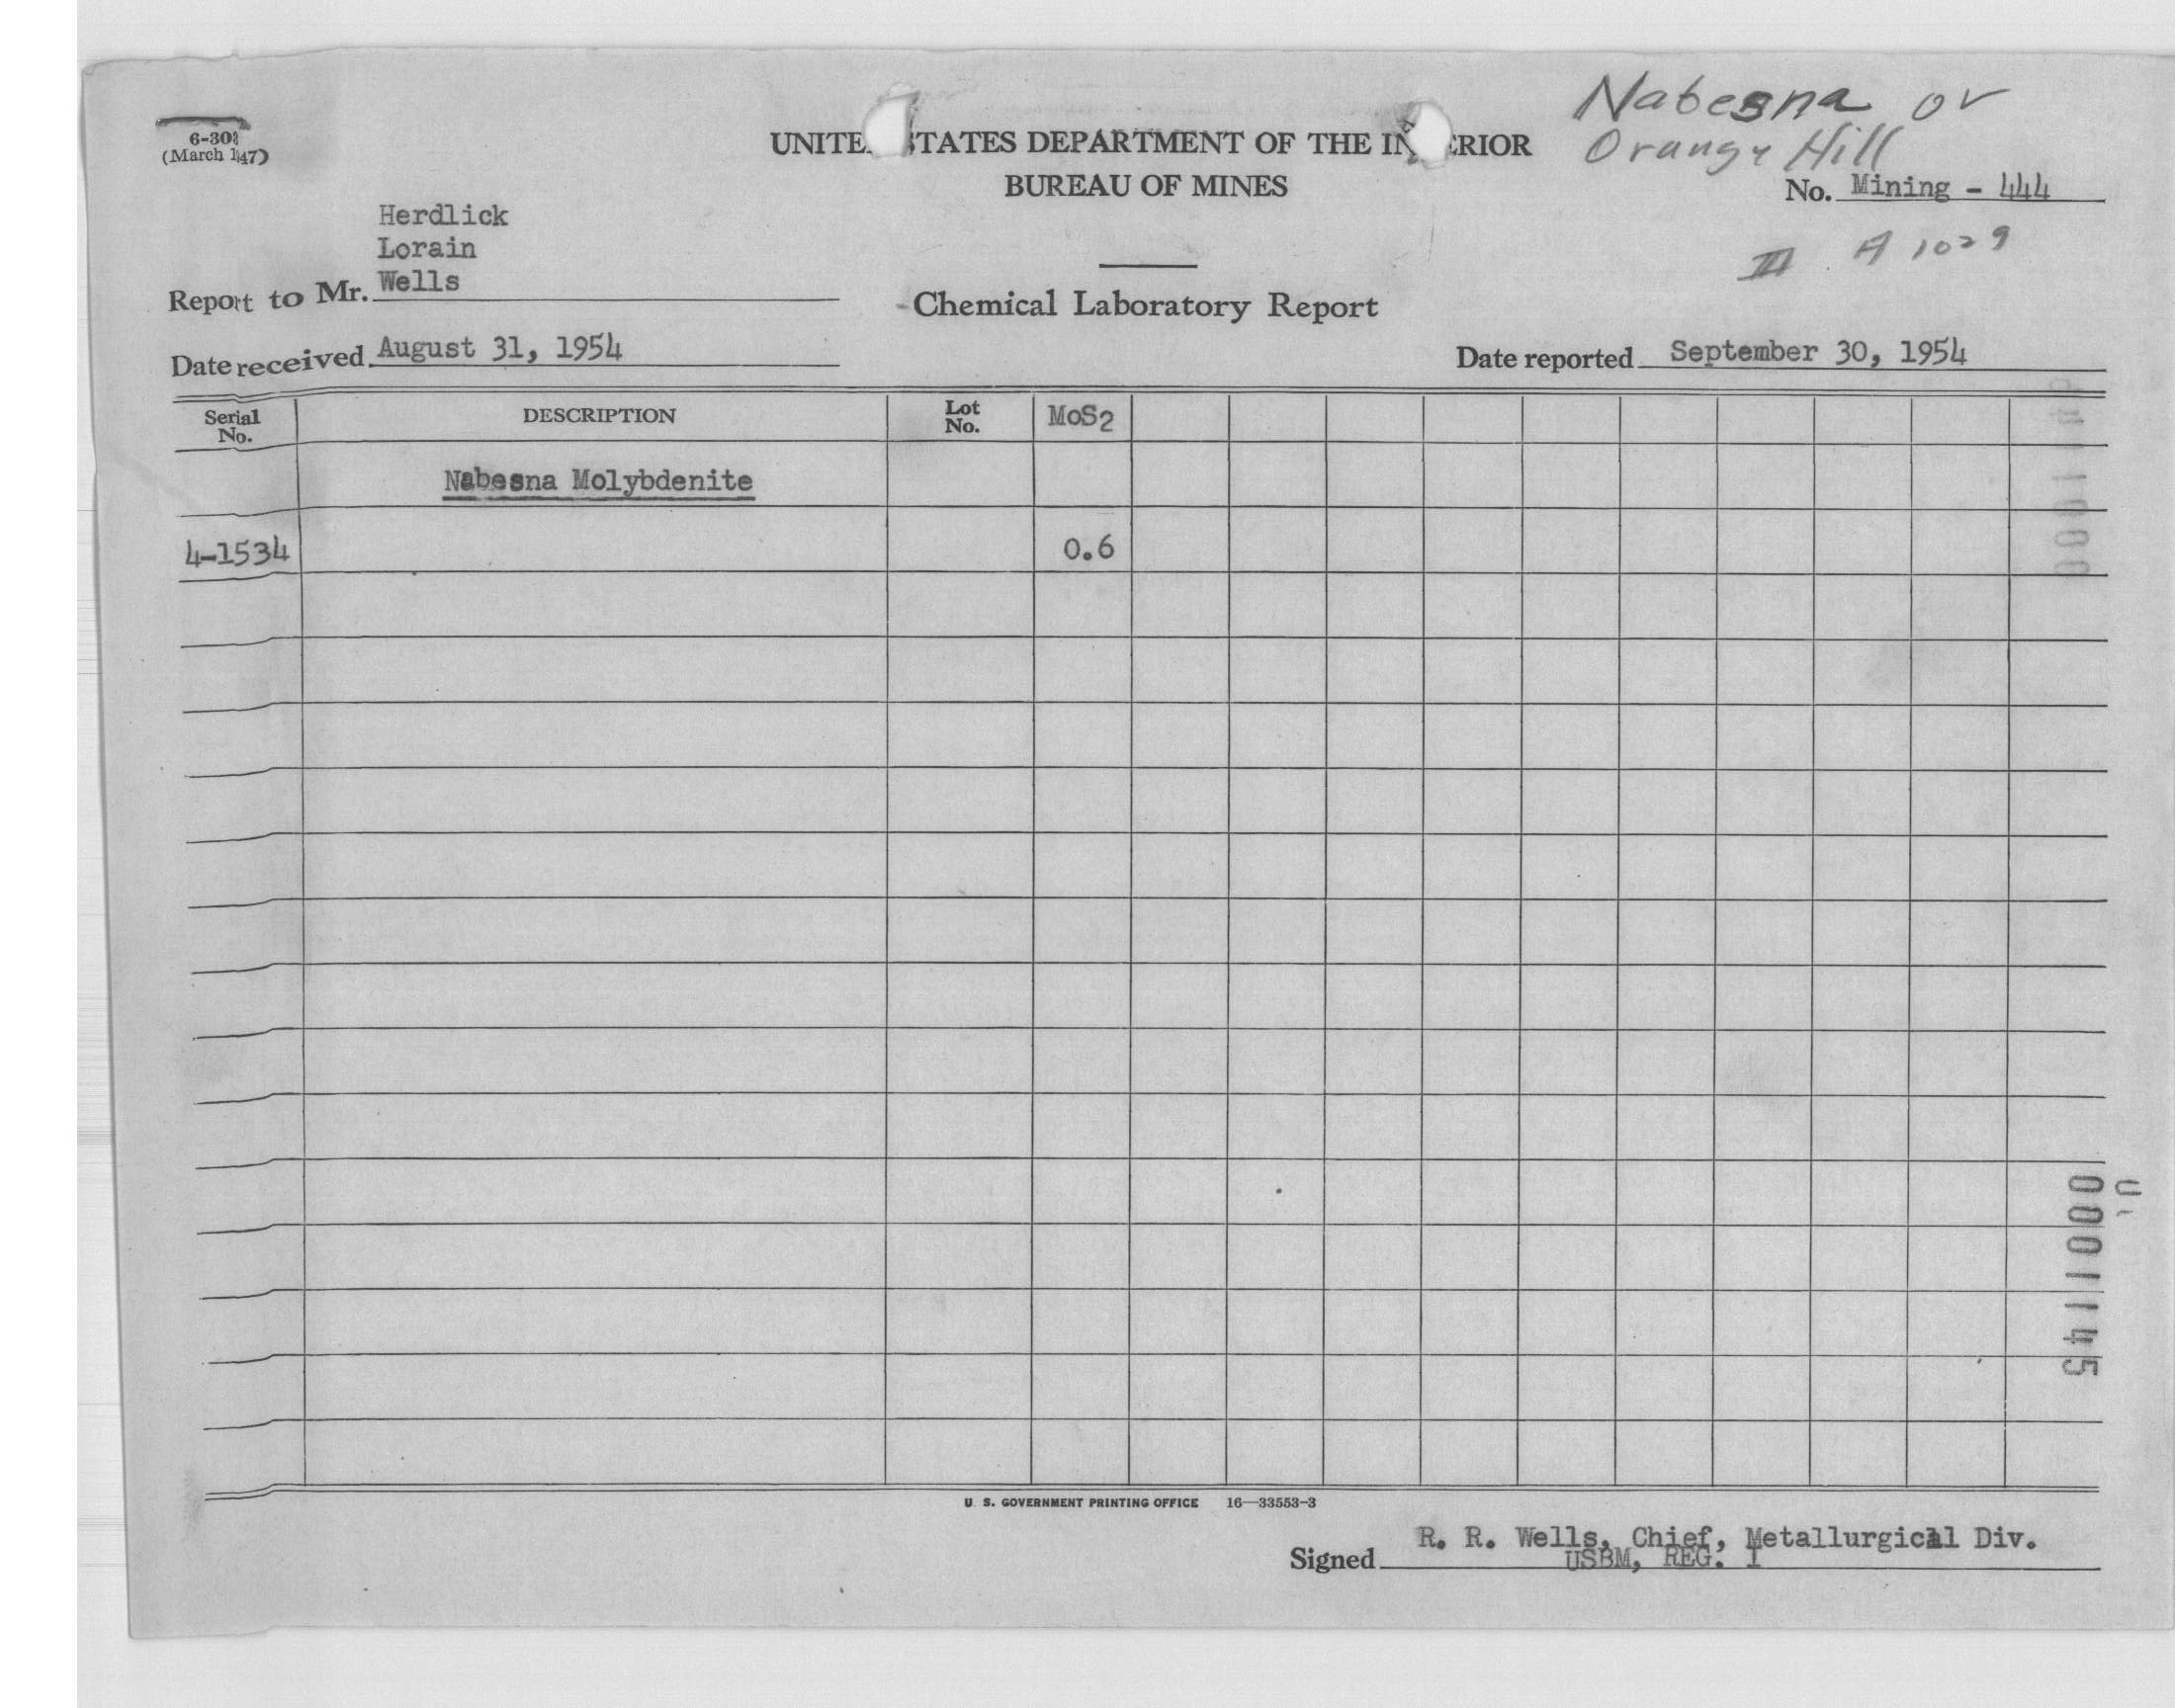 Nabesna or
Orange Hill
(March 1947)
UNITED STATES DEPARTMENT OF THE INTERIOR
BUREAU OF MINES
No. Mining - 444
III A 1029
Herdlick
Lorain
Report to Mr. Wells
Chemical Laboratory Report
Date received August 31, 1954
Date reported September 30, 1954
Serial No. DESCRIPTION Lot No. MoS2
Nabesna Molybdenite
4-1534 0.6
0001145
U. S. GOVERNMENT PRINTING OFFICE 16—33553-3
R. R. Wells, Chief, Metallurgical Div.
Signed USBM, REG. I